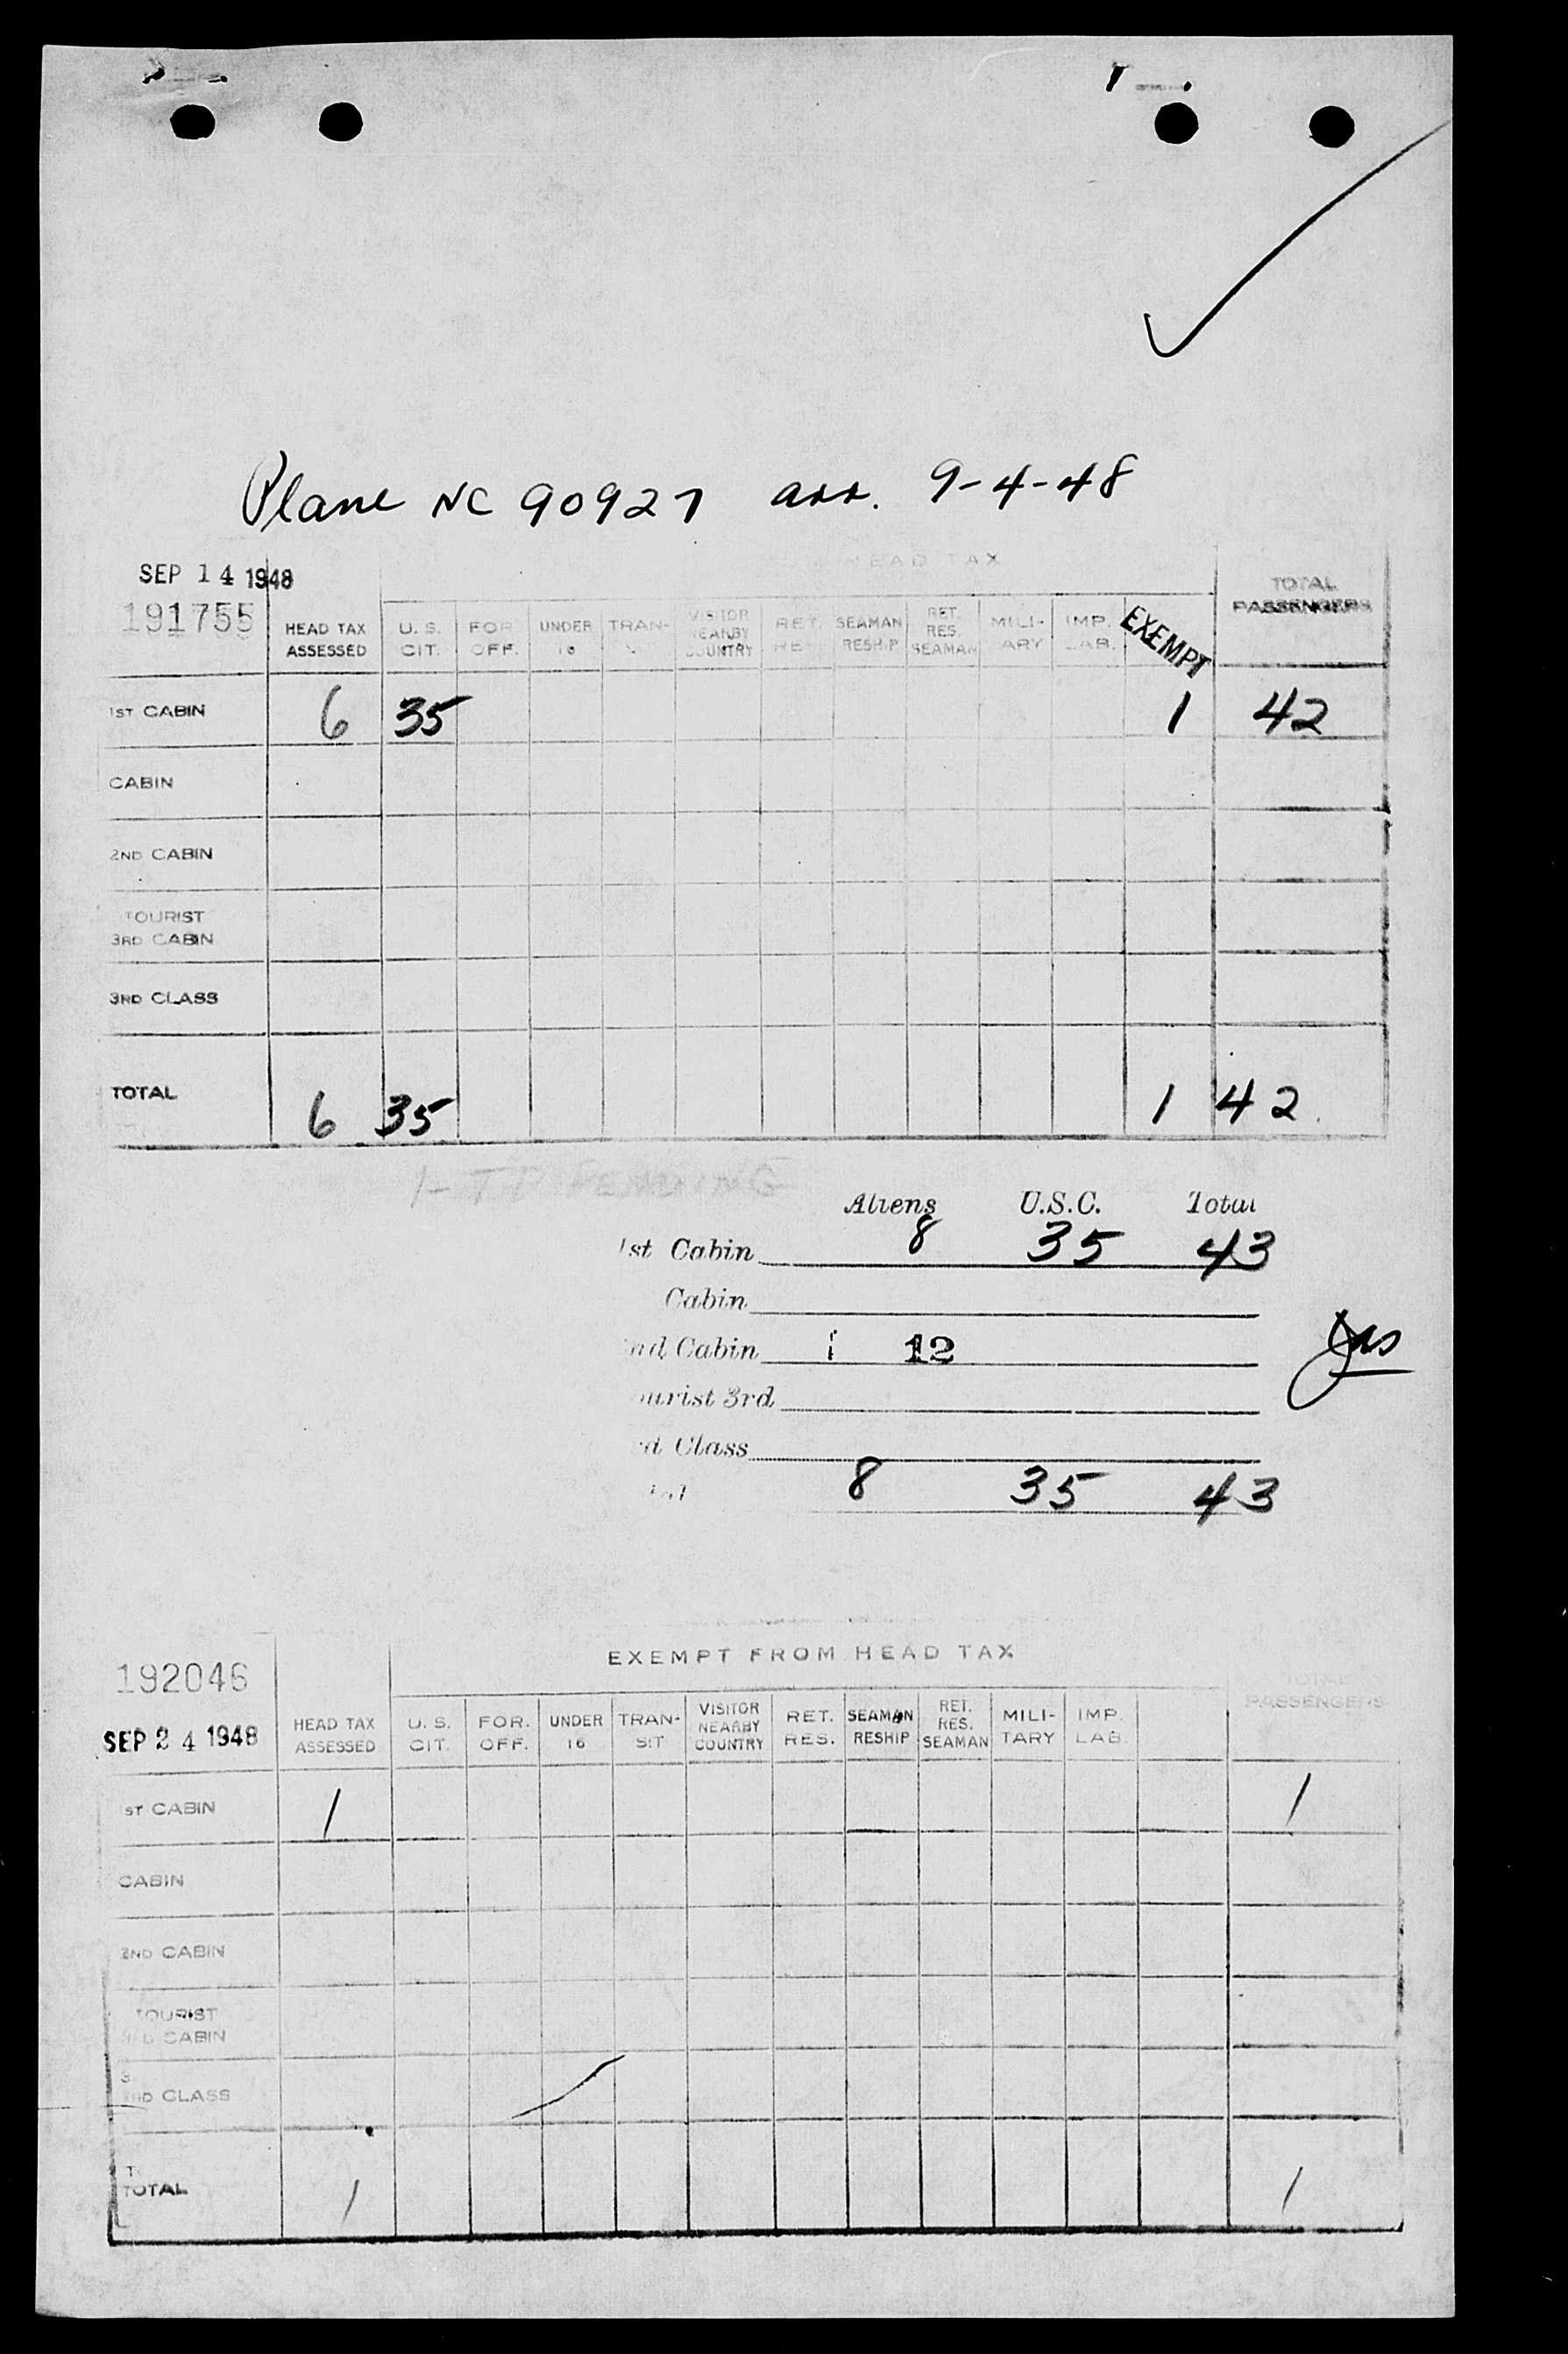 Plane NC 90927 arr. 9-4-48
SEP 14 1948
191755
HEAD TAX
TOTAL PASSENGERS
HEAD TAX ASSESSED
U. S. CIT.
FOR OFF.
UNDER 16
TRAN-
VISITOR NEARBY COUNTRY
RET. RES
SEAMAN RESHIP
RET. RES. SEAMAN
MILI- ARY
IMP. LAB.
EXEMPT
1ST CABIN 6 35 1 42
CABIN
2ND CABIN
TOURIST
3RD CABIN
3RD CLASS
TOTAL 6 35 1 42
PENDING
Aliens U.S.C. Total
1st Cabin 8 35 43
Cabin
nd Cabin 12
urist 3rd
d Class
8 35 43
EXEMPT FROM HEAD TAX
192046
SEP 24 1948
TOTAL PASSENGERS
HEAD TAX ASSESSED
U. S. CIT.
FOR. OFF.
UNDER 16
TRAN- SIT
VISITOR NEARBY COUNTRY
RET. RES.
SEAMAN RESHIP
RET. RES. SEAMAN
MILI- TARY
IMP. LAB.
ST CABIN 1 1
CABIN
2ND CABIN
TOURIST
3RD CABIN
CLASS
TOTAL 1 1